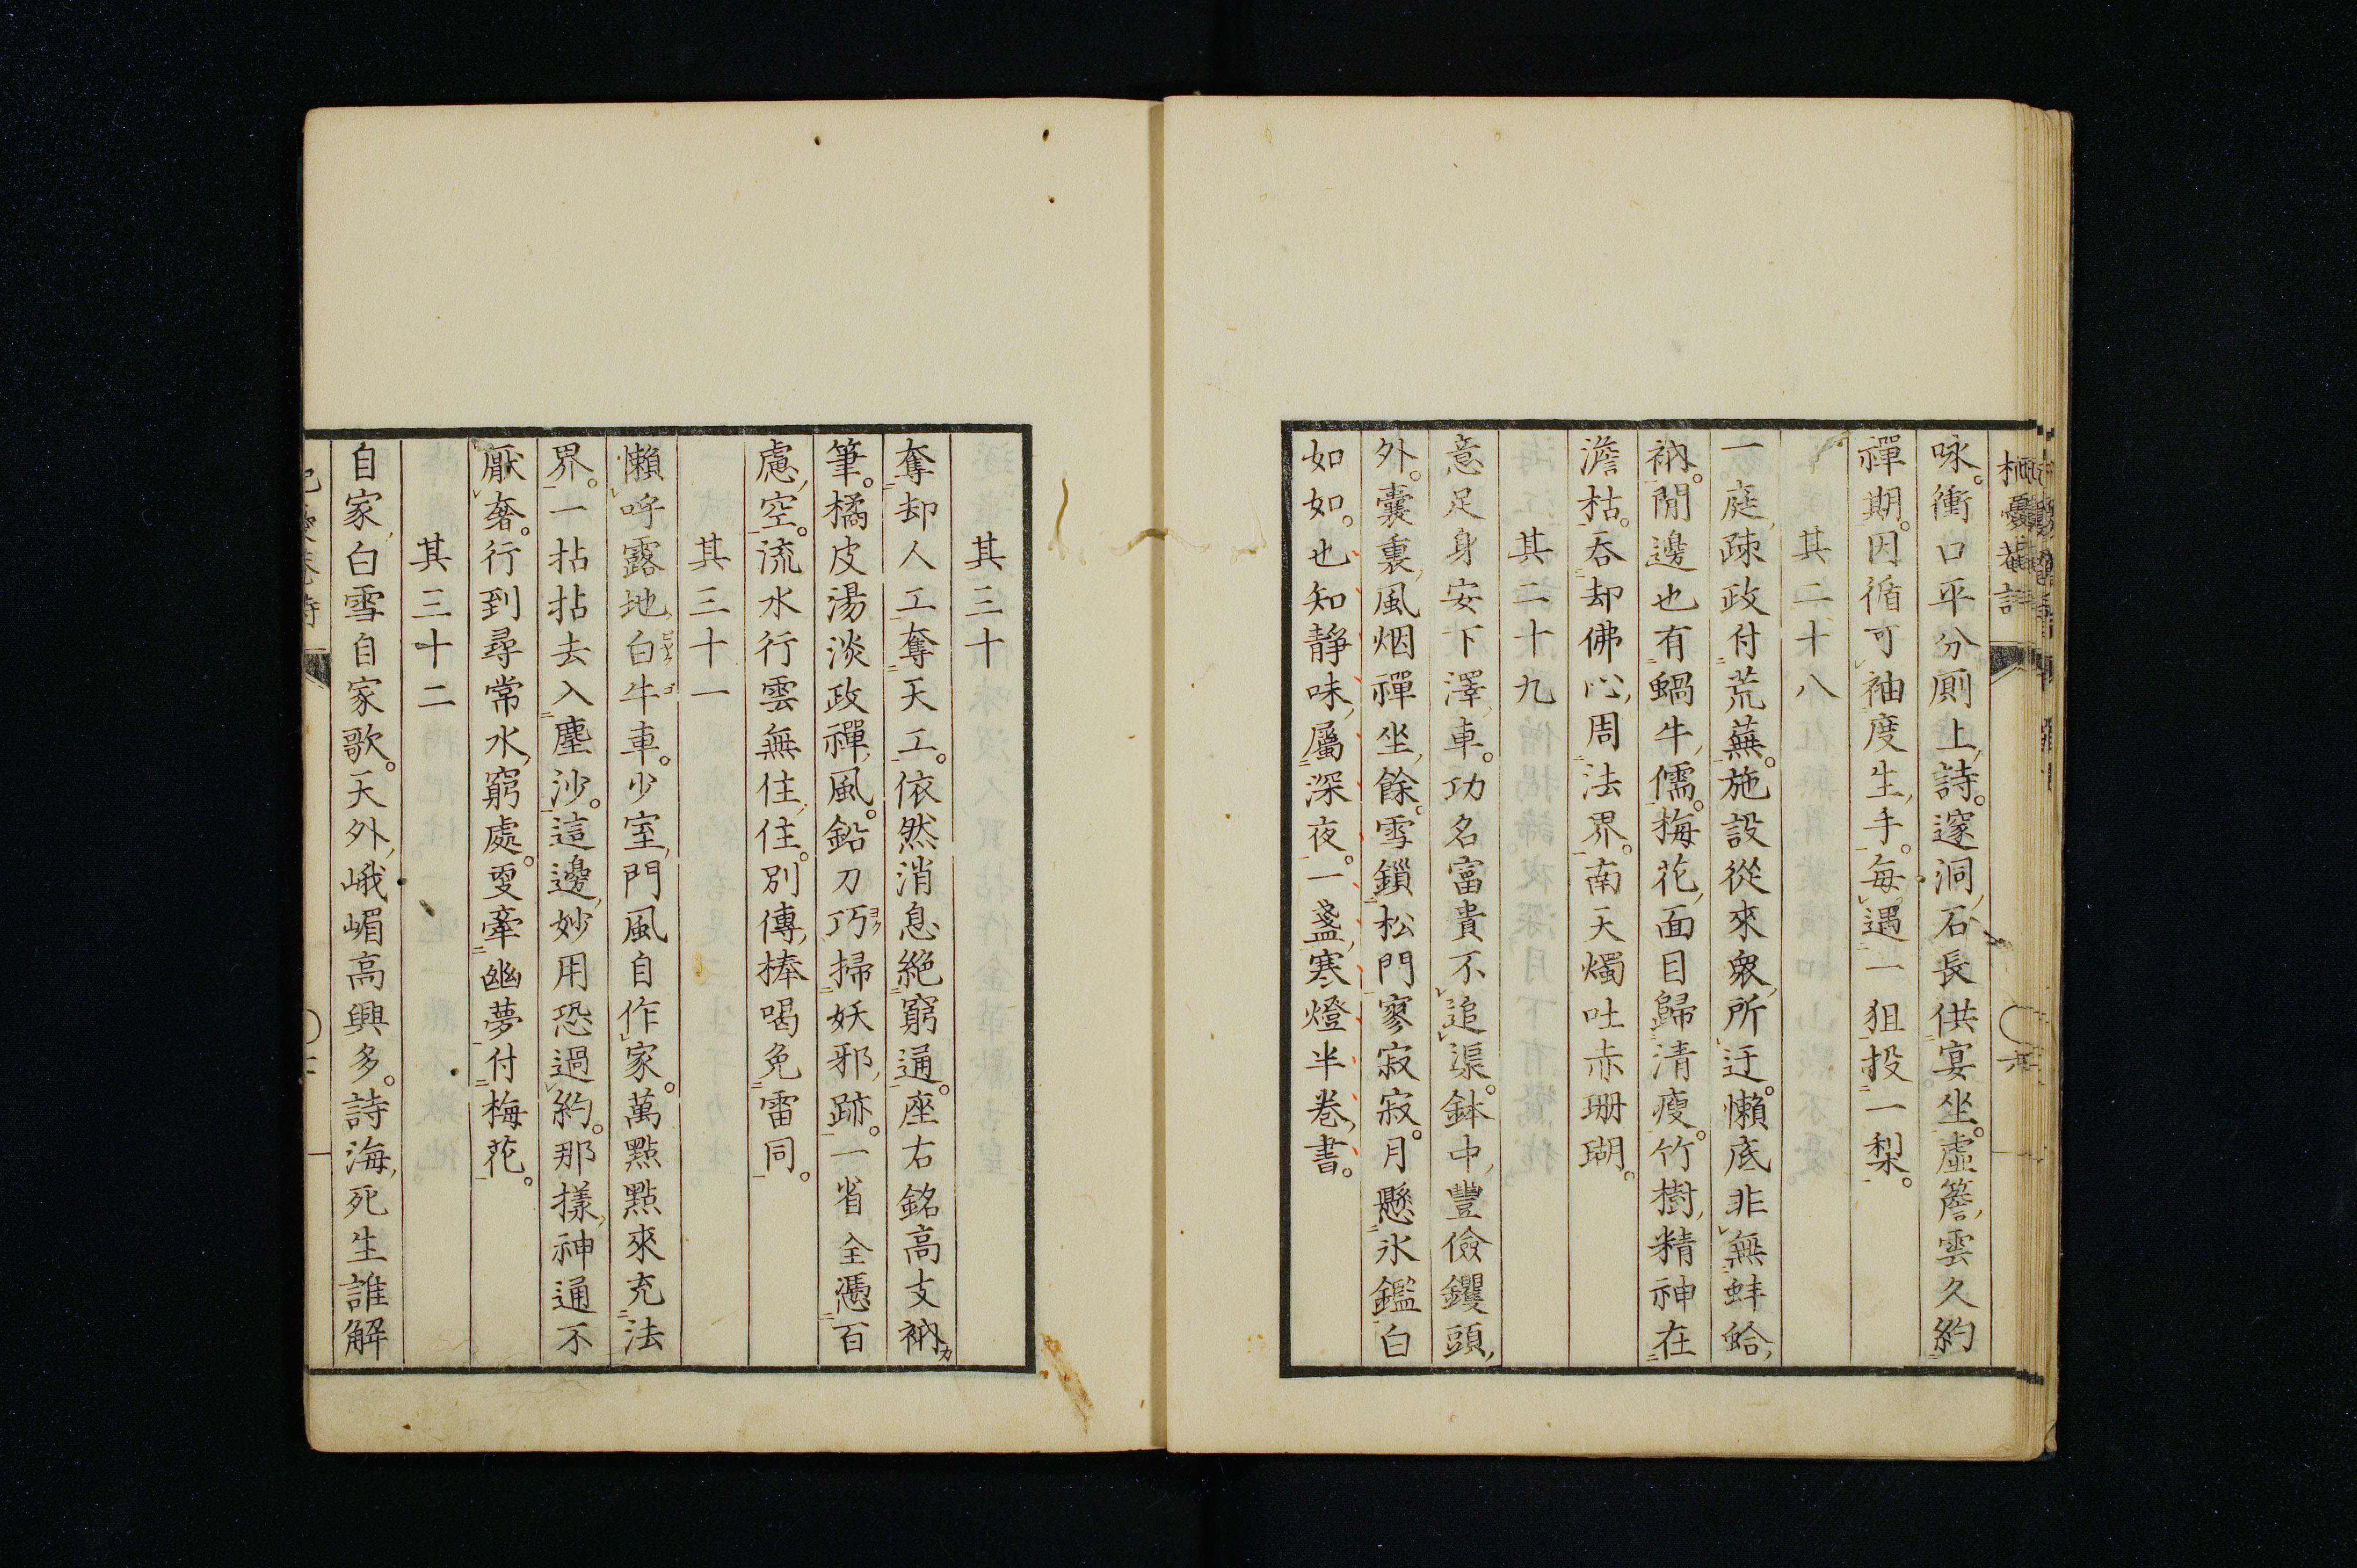 咏。衝口平分厠上詩。邃洞石長供宴坐。虛簷雲久約
禪期。因循可袖度生手。每遇一狙投一梨。
其二十八
一庭疎政付荒蕪。施設從來衆所迂。懶底非無蚌蛤
衲。閒邊也有蝸牛儒。梅花面目歸清瘦。竹樹精神在
澹枯。吞却佛心周法界。南天燭吐赤珊瑚。
其二十九
意足身安下澤車。功名富貴不追渠。鉢中豐儉钁頭
外。囊裏風烟禪坐餘。雪鎻松門寥寂寂。月懸氷鑑白
如如。也知靜味屬深夜。一盞寒燈半卷書。
其三十
奪却人工奪天工。依然消息絶窮通。座右銘高支衲
筆。橘皮湯淡政禪風。鉛刀巧掃妖邪跡。一省全憑百
慮空。流水行雲無住住。別傳棒喝免雷同。
其三十一
懶呼露地白牛車。少室門風自作家。萬點點來充法
界。一拈拈去入塵沙。這邊妙用恐過約。那㨾神通不
厭奢。行到尋常水窮處。叓牽幽夢付梅花。
其三十二
自家白雪自家歌。天外峨嵋高興多。詩海死生誰解